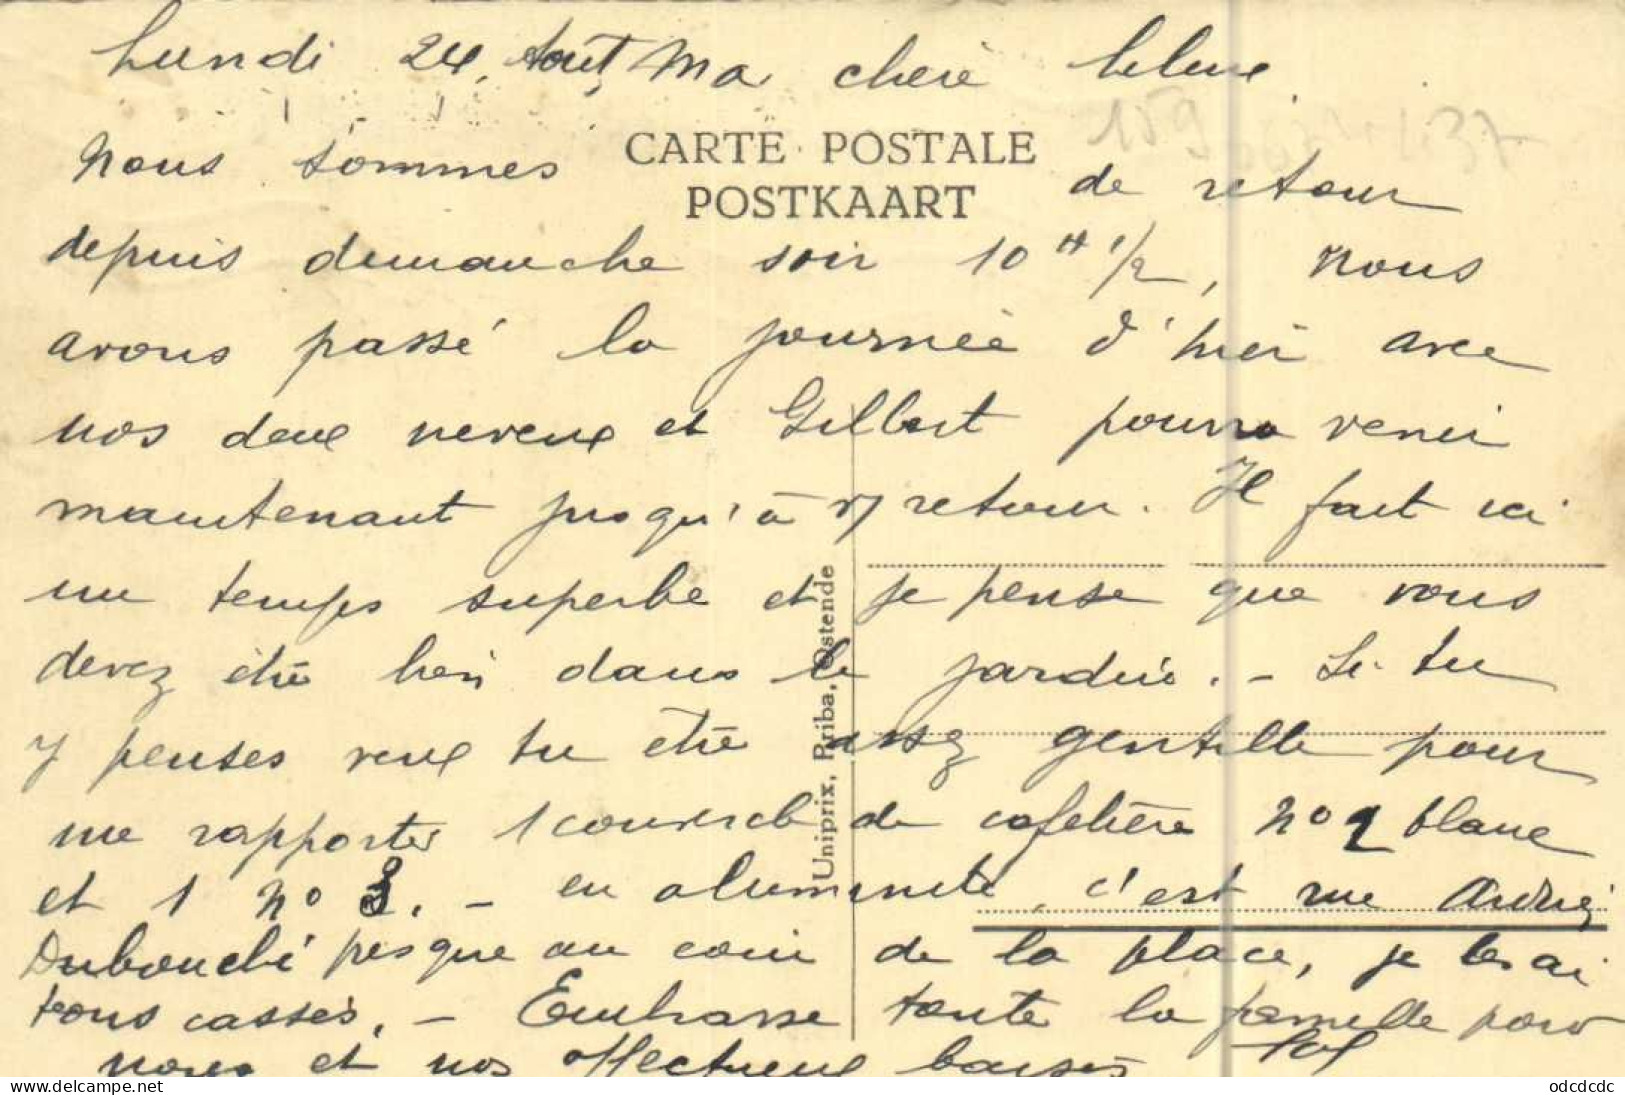 Lundi 24 Août, Ma chère Hélène,
CARTE POSTALE
POSTKAART
Nous sommes de retour
depuis dimanche soir 10 H 1/2, nous
avons passé la journée d'hier avec
nos deux neveux et Gilbert pourra venir
maintenant jusqu'à v/ retour. Il fait ici
un temps superbe et je pense que vous
devez être bien dans le jardin. - Si tu
y penses veux tu être assez gentille pour
me rapporter 1 couvercle de cafetière No 2 blanc
et 1 No 3. - en aluminite, c'est rue Adrien
Dubouché presque au coin de la place, je les ai
tous cassés. - Embrasse toute la famille pour
nous et nos affectueux baisers
Uniprix, Priba, Ostende
odcdcdc